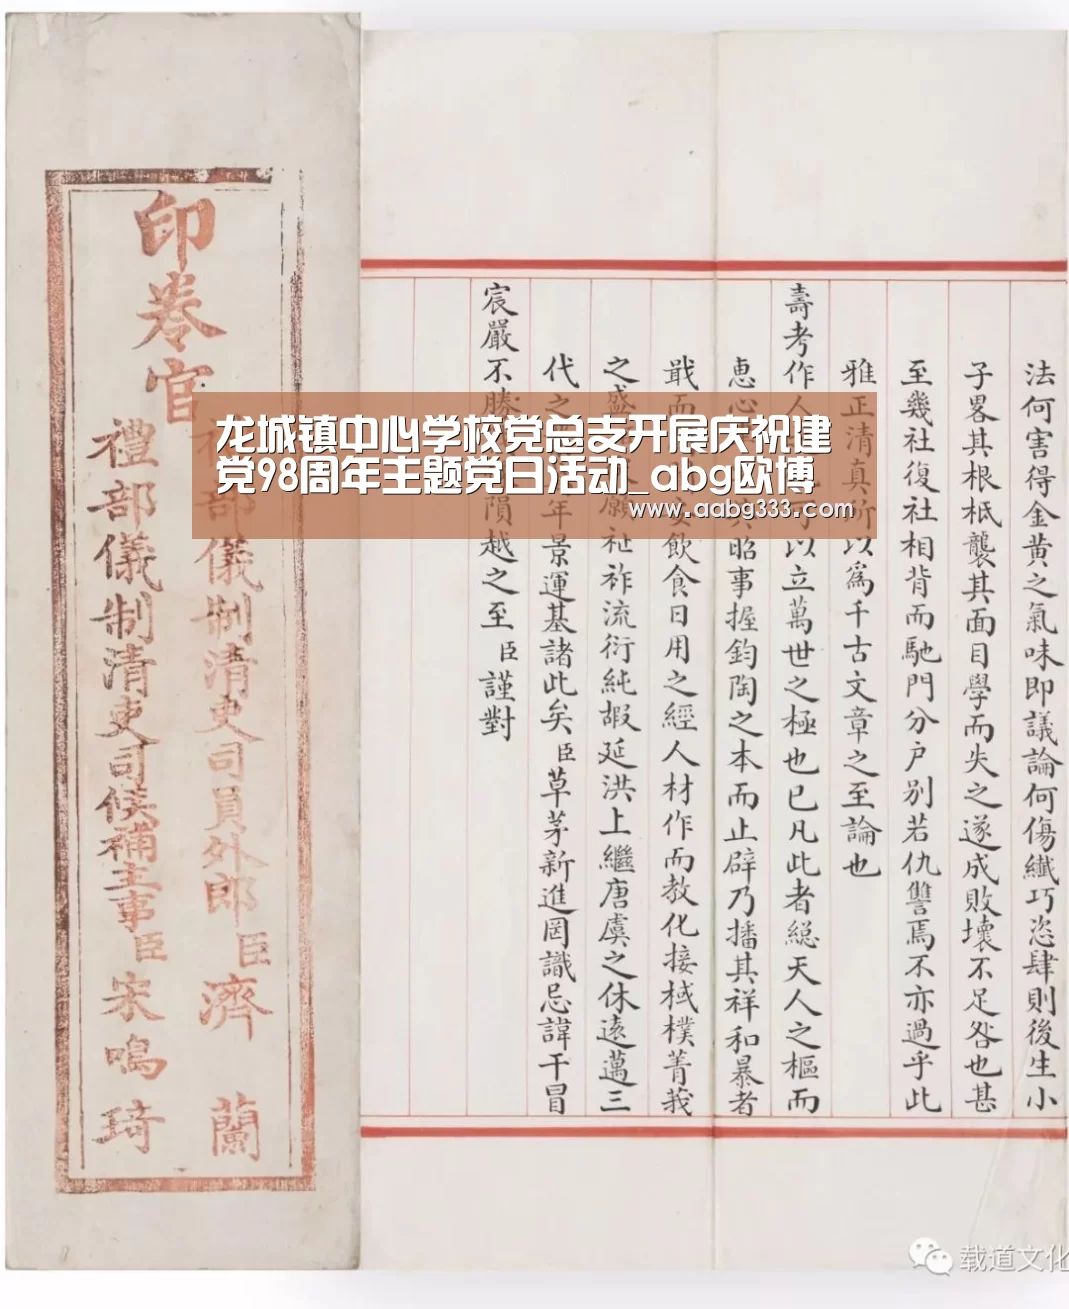 龙城镇中心学校党总支开展庆祝建
党98周年主题党日活动_abg欧博
www.aabg333.com
法何害得金黄之氣味即議論何傷纖巧恣肆則後生小
子畧其根柢襲其面目學而失之遂成敗壞不足咎也甚
至幾社復社相背而馳門分户别若仇讐焉不亦過乎此
雅正清真所以為千古文章之至論也
壽考作人以立萬世之極也已凡此者總天人之樞而
惠心昭事握鈞陶之本而止辟乃播其祥和暴者
戢而安飲食日用之經人材作而教化接棫樸菁莪
之盛願祉祚流衍純嘏延洪上繼唐虞之休遠邁三
代之年景運基諸此矣臣草茅新進罔識忌諱干冒
宸嚴不勝隕越之至臣謹對
印卷官
禮部儀制清吏司員外郎臣濟蘭
禮部儀制清吏司候補主事臣宋鳴琦
载道文化